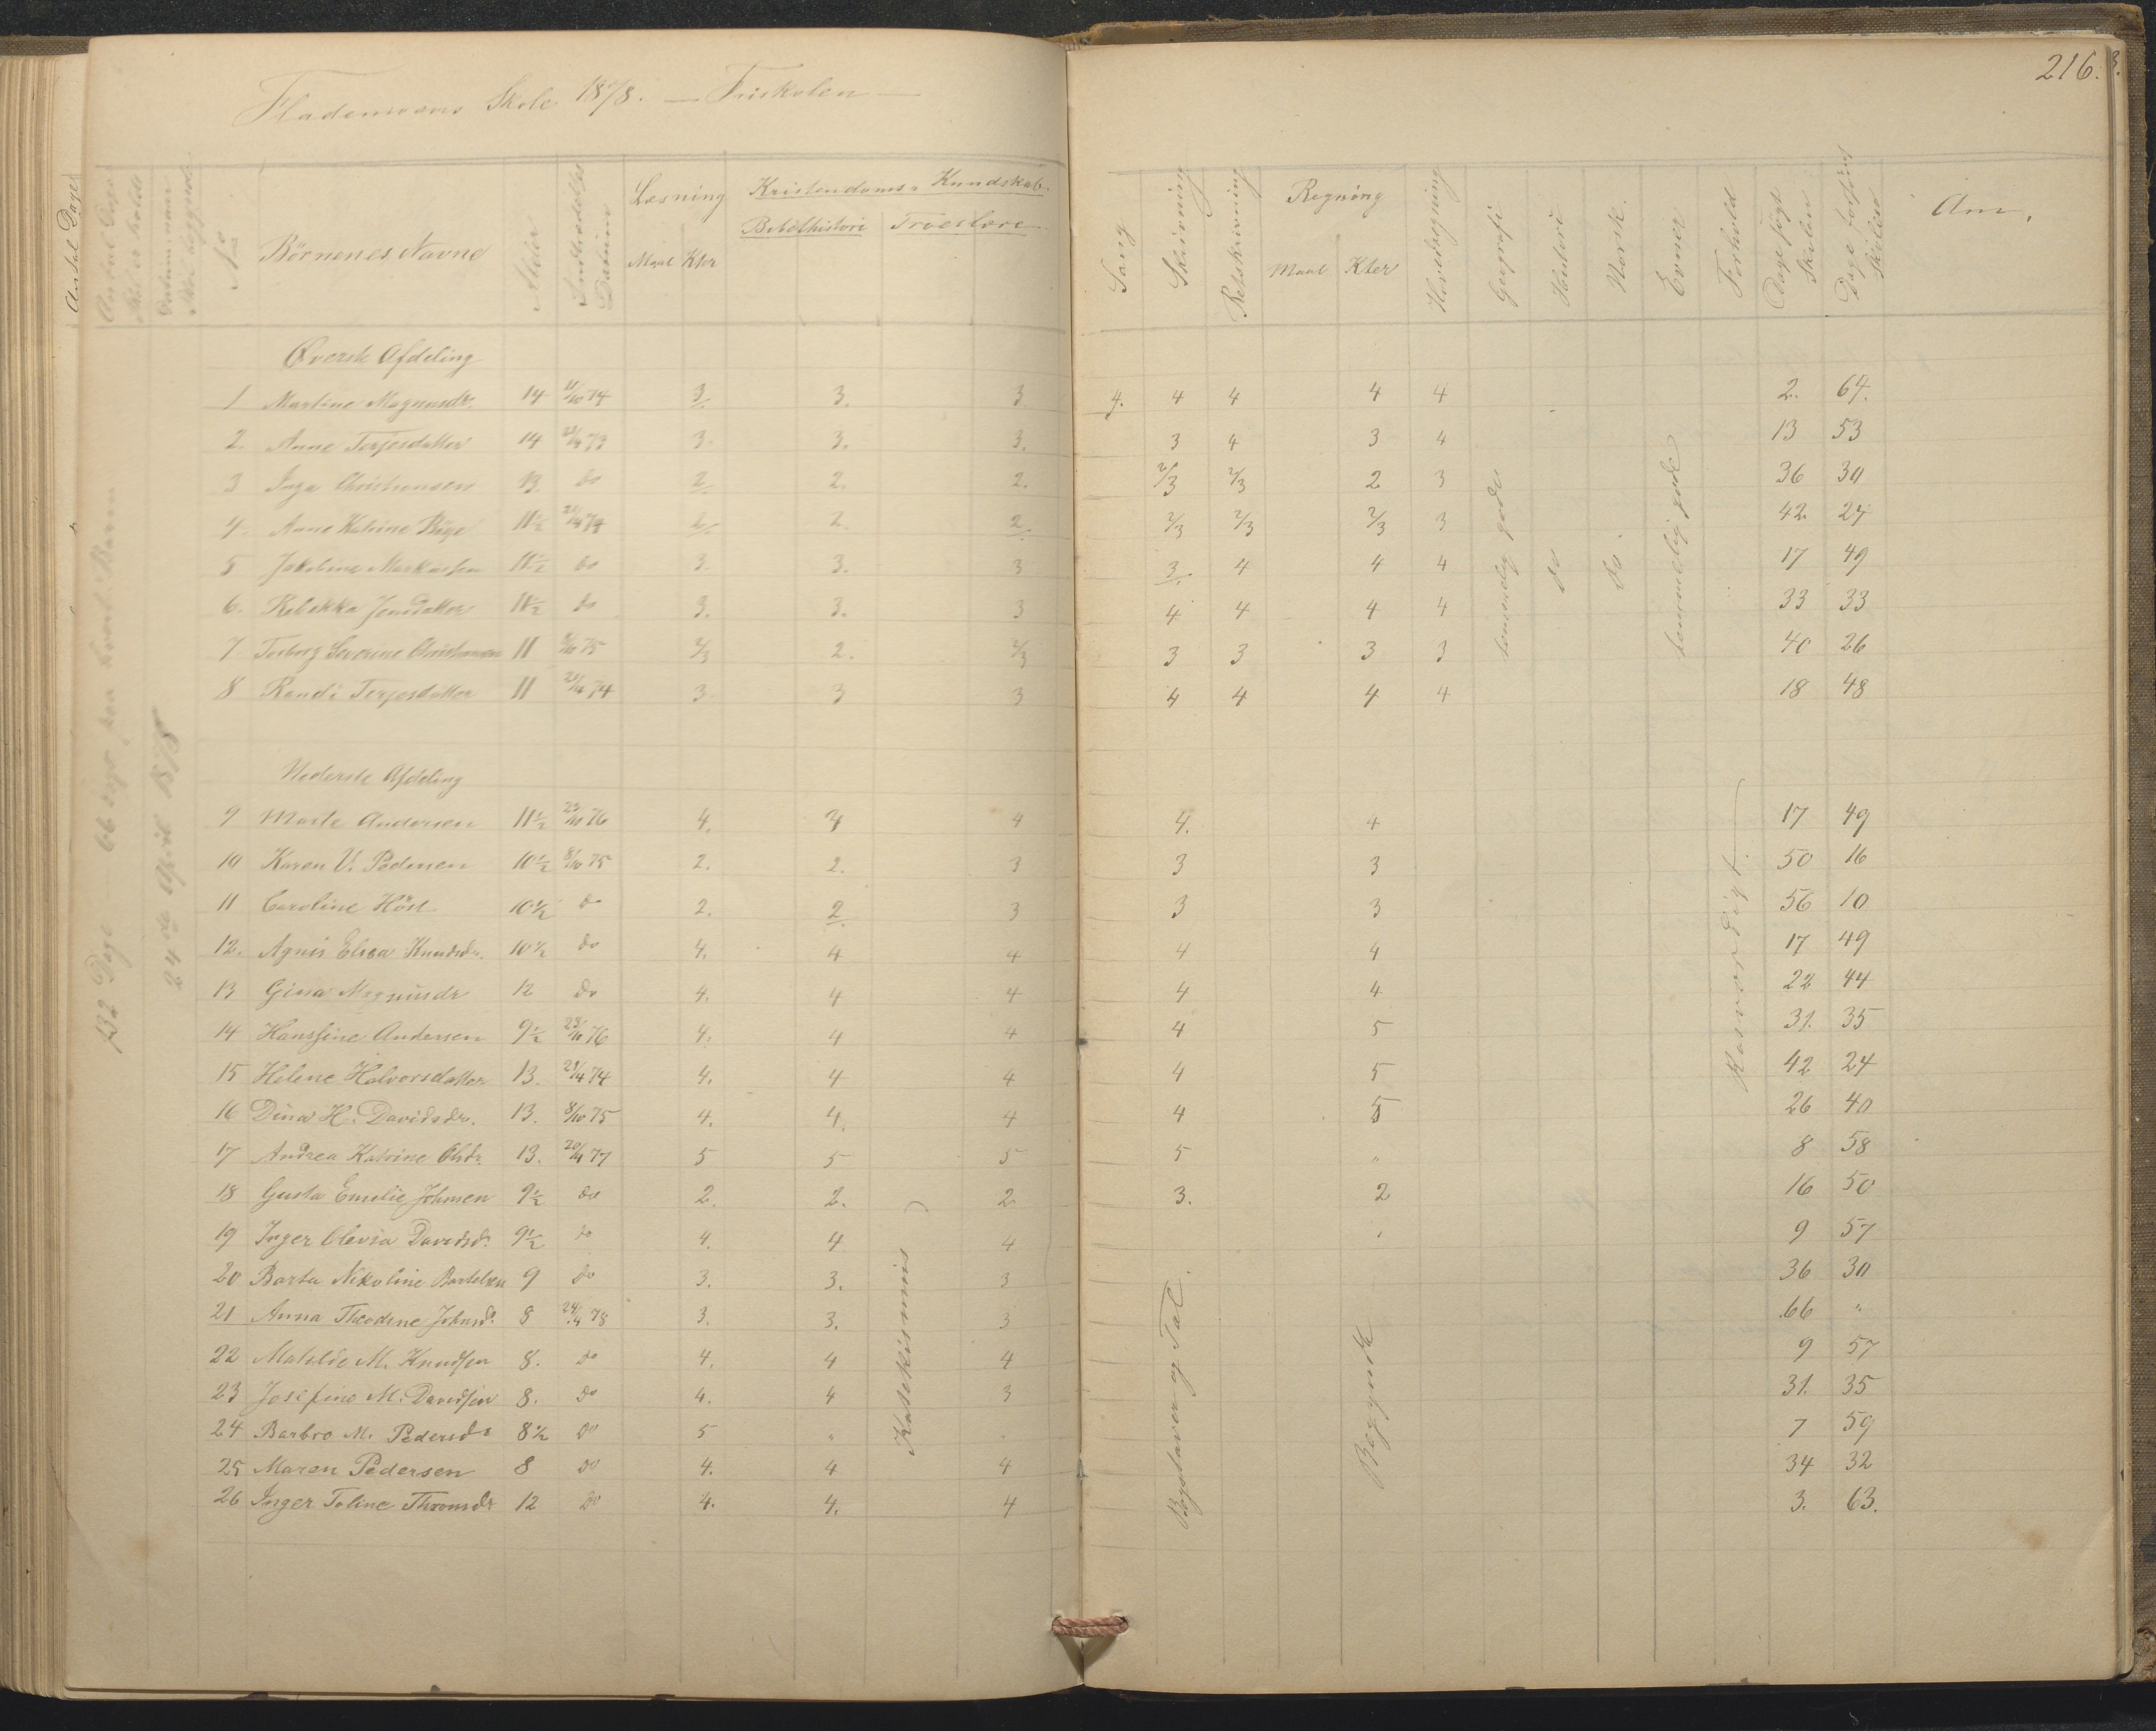 216.
Flademoens Skole 1878. — Friskolen —
Antal Dage
No
Börnenes Navne
Alder
Indtrædelses Datum
Læsning
Maal Kter
Kristendoms Kundskab.
Bibelhistori Troeslære
Sang
Skrivning
Retskrivning
Regning
Maal Kter
Hovedregning
Geografi
Histori
Norsk.
Evner
Forhold
Dage søgt Skolen
Dage forsømt Skolen
Anm.
132 Dage 66 Dage paa hvert Barn
24de April 1878
Øverste Afdeling
1 Martine Magnusdr. 14 11/10 74 3. 3. 3 4. 4 4 4 4 2. 64.
2. Anne Terjesdatter 14 23/4 73 3. 3. 3. 3 4 3 4 13 53
3 Inga Christiansen 13. do 2. 2. 2. 2/3 2/3 2 3 36 30
4. Anne Katrine Böge 11½ 2. 2. 2/3 2/3 2/3 3 42. 24
5 Jakobine Markussen 11½ do 3. 3. 3 3. 4 4 4 17 49
6. Rebekka Jensdatter 11½ do 3. 3. 3 4 4 4 4 33 33
7. Torborg Severine Christiansen 11 8/10 75 2/3 2. 2/3 3 3 3 3 40 26
8 Randi Terjesdatter 11 23/4 74 3. 3 3 4 4 4 4 18 48
temmelig gode
do
do.
temmelig gode
Nederste Afdeling
9 Marte Andersen 11½ 23/10 76 4. 4 4. 4 17 49
10 Karen V. Pedersen 10½ 8/10 75 2. 2. 3 3 3 50 16
11 Caroline Höst 10½ do 2. 2. 3 3 3 56 10
12. Agnis Elisa Knudsdr. 10½ do 4. 4 4 4 4 17 49
13 Gina Magnusdr 12 do 4. 4 4 4 4 22 44
14 Hansine Andersen 9½ 23/10 76 4. 4 4 4 5 31. 35
15 Helene Halvorsdatter 13. 23/4 74 4. 4 4 4 5 42 24
16 Dina H. Davidsdr. 13. 8/10 75 4. 4. 4 4 5 26 40
17 Andrea Katrine Olsdr. 13. 20/4 77 5 5 5 5 " 8 58
18 Gusta Emilie Johnsen 9½ do 2. 2. 2 3. 2 16 50
19 Inger Olevia Davidsdr. 9½ do 4. 4 4 9 57
20 Berta Nikoline Bertelsen 9 do 3. 3. 3 36 30
21 Anna Theodine Johnsdr. 8 24/4 78 3. 3. 3 66 "
22 Matilde M. Knudsen 8. do 4. 4 4 9 57
23 Josefine M. Davidsen 8. do 4. 4 3 31. 35
24 Barbro M. Pedersdr 8½ do 5 " 7 59
25 Maren Pedersen 8 do 4. 4 4 34 32
26 Inger Toline Thronsdr 12 do 4. 4. 4 3. 63.
Katekismus
Bogstaver og Tal.
Begyndt
Rosværdigt.